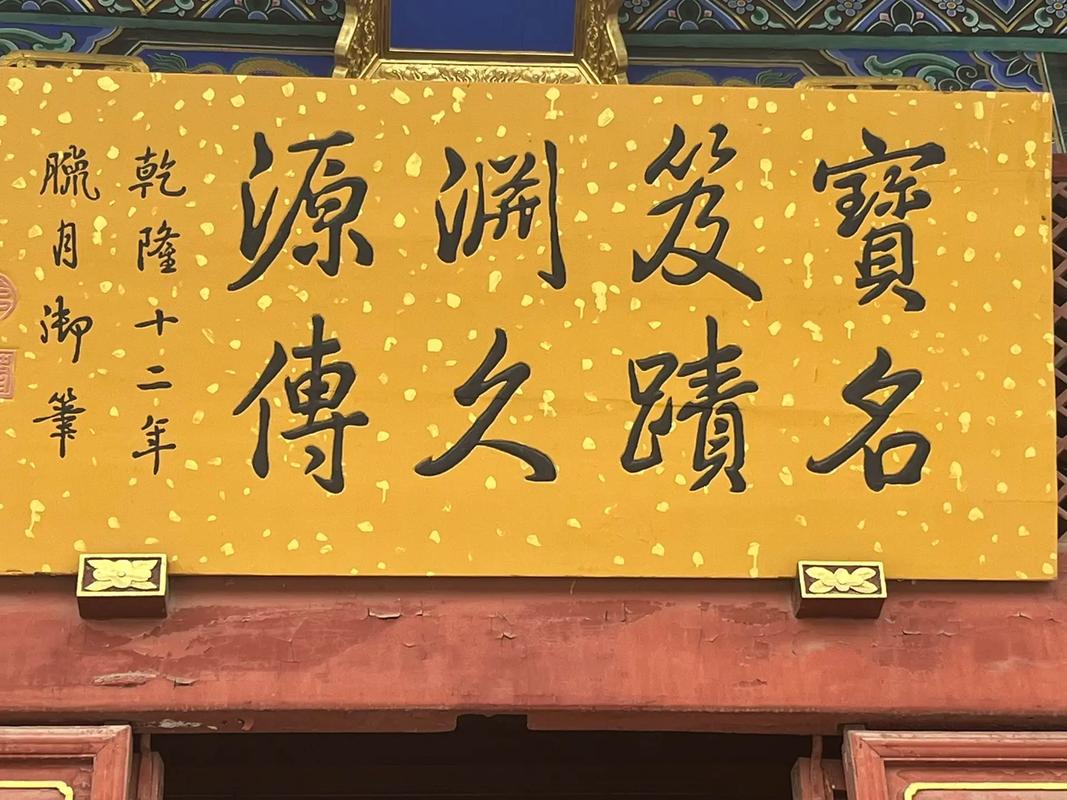 寶笈淵源
名蹟久傳
乾隆十二年
臘月御筆